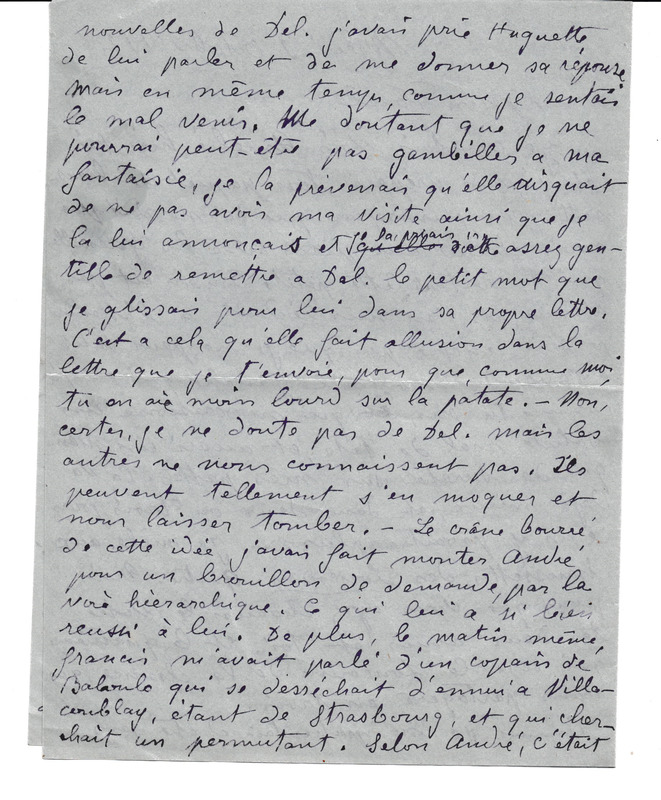 nouvelles de Del. j'avais prié Huguette
de lui parler et de me donner sa réponse
mais en même temps, comme je sentais
le mal venir. Me doutant que je ne
pourrai peut-être pas gambiller a ma
fantaisie, je la prévenais qu'elle risquait
de ne pas avoir ma visite ainsi que je
la lui annonçais et je la priais d'être assez gen-
tille de remettre a Del. le petit mot que
je glissais pour lui dans sa propre lettre.
C'est a cela qu'elle fait allusion dans la
lettre que je t'envoie, pour que, comme moi
tu en aie moins lourd sur la patate. - Non,
certes, je ne doute pas de Del. mais les
autres ne nous connaissent pas. Ils
peuvent tellement s'en moquer et
nous laisser tomber. - Le crâne bourré
de cette idée j'avais fait monter André
pour un brouillon de demande, par la
voie hiérarchique. Ce qui lui a si bien
reussi à lui. De plus, le matin même,
francis m'avait parlé d'un copain de
qui se desséchait d'ennui a Villa-
coublay, étant de Strasbourg, et qui cher-
chait un permutant. Selon André, c'était